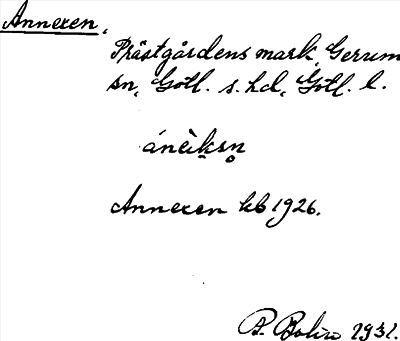 Annexen,
Prästgårdens mark, Gerum
sn, Gotl. s. hd, Gotl. l.
ánèiksn̥
Annexen kb 1926.
P. Bohin 1931.